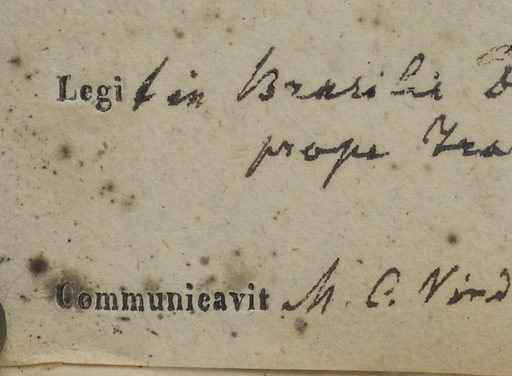 Legit in Brasilia
prope
Communicavit M. C.